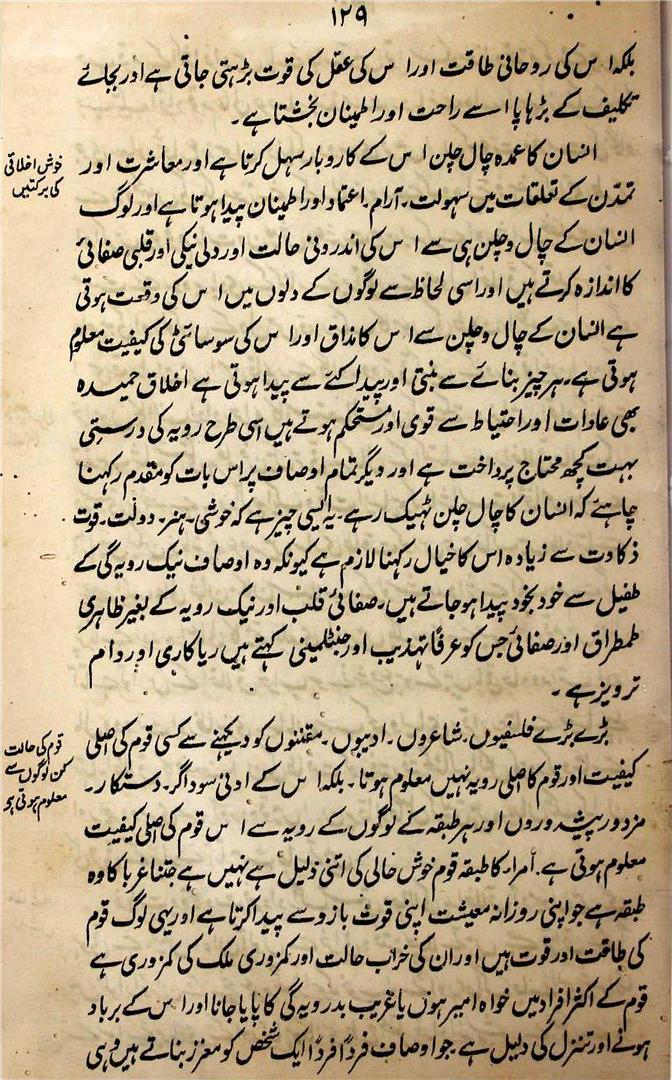 ۱۲۹
بلکہ اس کی روحانی طاقت اور اس کی عقل کی قوت بڑہتی جاتی ہے اور بجائے
تکلیف کے بڑہاپا اسے راحت اور اطمینان بخشتا ہے۔
خوش اخلاقی
کی برکتیں
انسان کا عمدہ چال چلن اس کے کاروبار سہل کرتا ہے اور معاشرت اور
تمدّن کے تعلقات میں سہولت۔ آرام۔ اعتماد اور اطمینان پیدا ہوتا ہے اور لوگ
انسان کے چال و چلن ہی سے اس کی اندرونی حالت اور دلی نیکی اور قلبی صفائی
کا اندازہ کرتے ہیں اور اسی لحاظ سے لوگوں کے دلوں میں اس کی وقعت ہوتی
ہے انسان کے چال و چلن سے اس کا مذاق اور اس کی سوسائٹی کی کیفیت معلوم
ہوتی ہے۔ ہر چیز بنائے سے بنتی اور پیدا کئے سے پیدا ہوتی ہے اخلاق حمیدہ
بھی عادات اور احتیاط سے قوی اور مستحکم ہوتے ہیں اسی طرح رویہ کی درستی
بہت کچھ محتاج پرداخت ہے اور دیگر تمام اوصاف پر اس بات کو مقدم رکہنا
چاہئے کہ انسان کا چال چلن ٹہیک رہے۔ یہ ایسی چیز ہے کہ خوشی۔ ہنر۔ دولت۔ قوت
ذکاوت سے زیادہ اس کا خیال رکہنا لازم ہے کیونکہ وہ اوصاف نیک رویہ گی کے
طفیل سے خود بخود پیدا ہو جاتے ہیں۔ صفائی قلب اور نیک رویہ کے بغیر ظاہری
طمطراق اور صفائی جس کو عرفاً تہذیب اور جنٹلمینی کہتے ہیں ریاکاری اور دام
تزویز ہے۔
قوم کی حالت
کن لوگوں سے
معلوم ہوتی ہو
بڑے بڑے فلسفیوں۔ شاعروں۔ ادیبوں۔ مقننوں کو دیکہنے سے کسی قوم کی اصلی
کیفیت اور قوم کا اصلی رویہ نہیں معلوم ہوتا۔ بلکہ اس کے ادنی سوداگر۔ دستکار۔
مزدور پیشہ وروں اور ہر طبقہ کے لوگوں کے رویہ سے اس قوم کی اصلی کیفیت
معلوم ہوتی ہے۔ اُمرا کا طبقہ قوم خوش حالی کی اتنی دلیل ہے نہیں ہے جتنا غربا کا وہ
طبقہ ہے جو اپنی روزانہ معیشت اپنی قوت بازو سے پیدا کرتا ہے اور یہی لوگ قوم
کی طاقت اور قوت ہیں اور ان کی خراب حالت اور کمزوری ملک کی کمزوری ہے
قوم کے اکثر افراد میں خواہ امیر ہوں یا غریب بد رویہ گی کا پایا جانا اور اس کے برباد
ہونے اور تنزل کی دلیل ہے۔ جو اوصاف فرداً فرداً ایک شخص کو معزز بناتے ہیں وہی